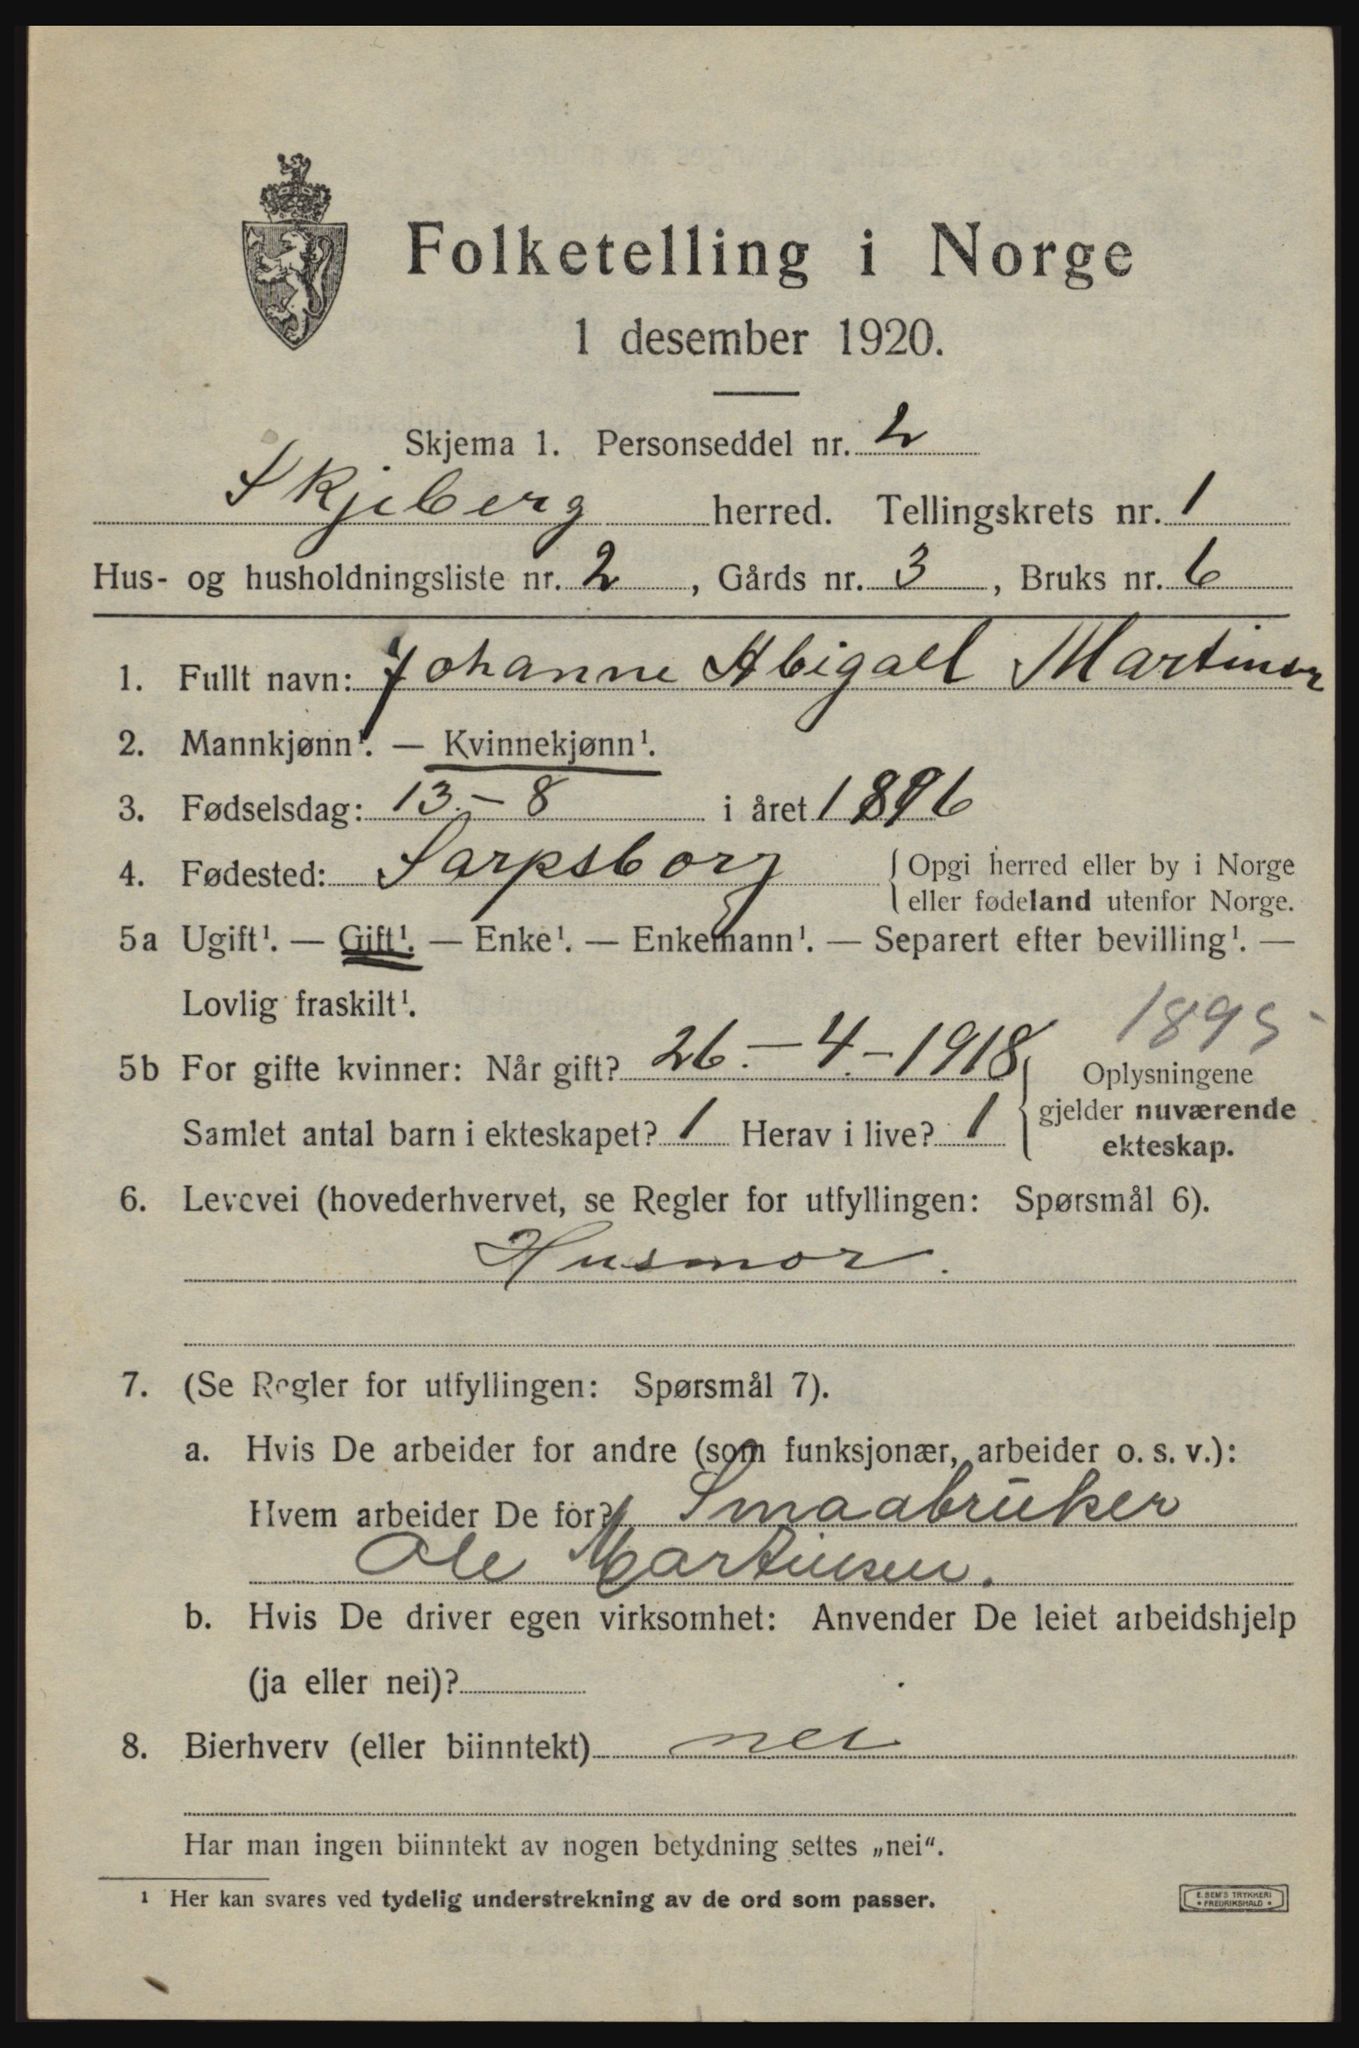 Folketelling i Norge
1 desember 1920.
Skjema 1. Personseddel nr. 2
Skjeberg herred. Tellingskrets nr. 1
Hus- og husholdningsliste nr. 2, Gårds nr. 3, Bruks nr. 6
1. Fullt navn: Johanne Abigael Martinsen
2. Mannkjønn¹. — Kvinnekjønn¹.
3. Fødselsdag: 13.-8 i året 1896
4. Fødested: Sarpsborg { Opgi herred eller by i Norge
eller fødeland utenfor Norge.
5a Ugift¹. — Gift¹. — Enke¹. — Enkemann¹. — Separert efter bevilling¹. —
Lovlig fraskilt¹.
1895
5b For gifte kvinner: Når gift? 26.-4.-1918 { Oplysningene
gjelder nuværende
Samlet antal barn i ekteskapet? 1 Herav i live? 1
ekteskap.
6. Levevei (hovederhvervet, se Regler for utfyllingen: Spørsmål 6).
Husmor.
7. (Se Regler for utfyllingen: Spørsmål 7).
a. Hvis De arbeider for andre (som funksjonær, arbeider o. s. v.):
Hvem arbeider De for? Smaabruker
Ole Martinsen.
b. Hvis De driver egen virksomhet: Anvender De leiet arbeidshjelp
(ja eller nei)?
8. Bierhverv (eller biinntekt) nei
Har man ingen biinntekt av nogen betydning settes „nei“.
¹ Her kan svares ved tydelig understrekning av de ord som passer.
E. SEM'S TRYKKERI
• FREDRIKSHALD •